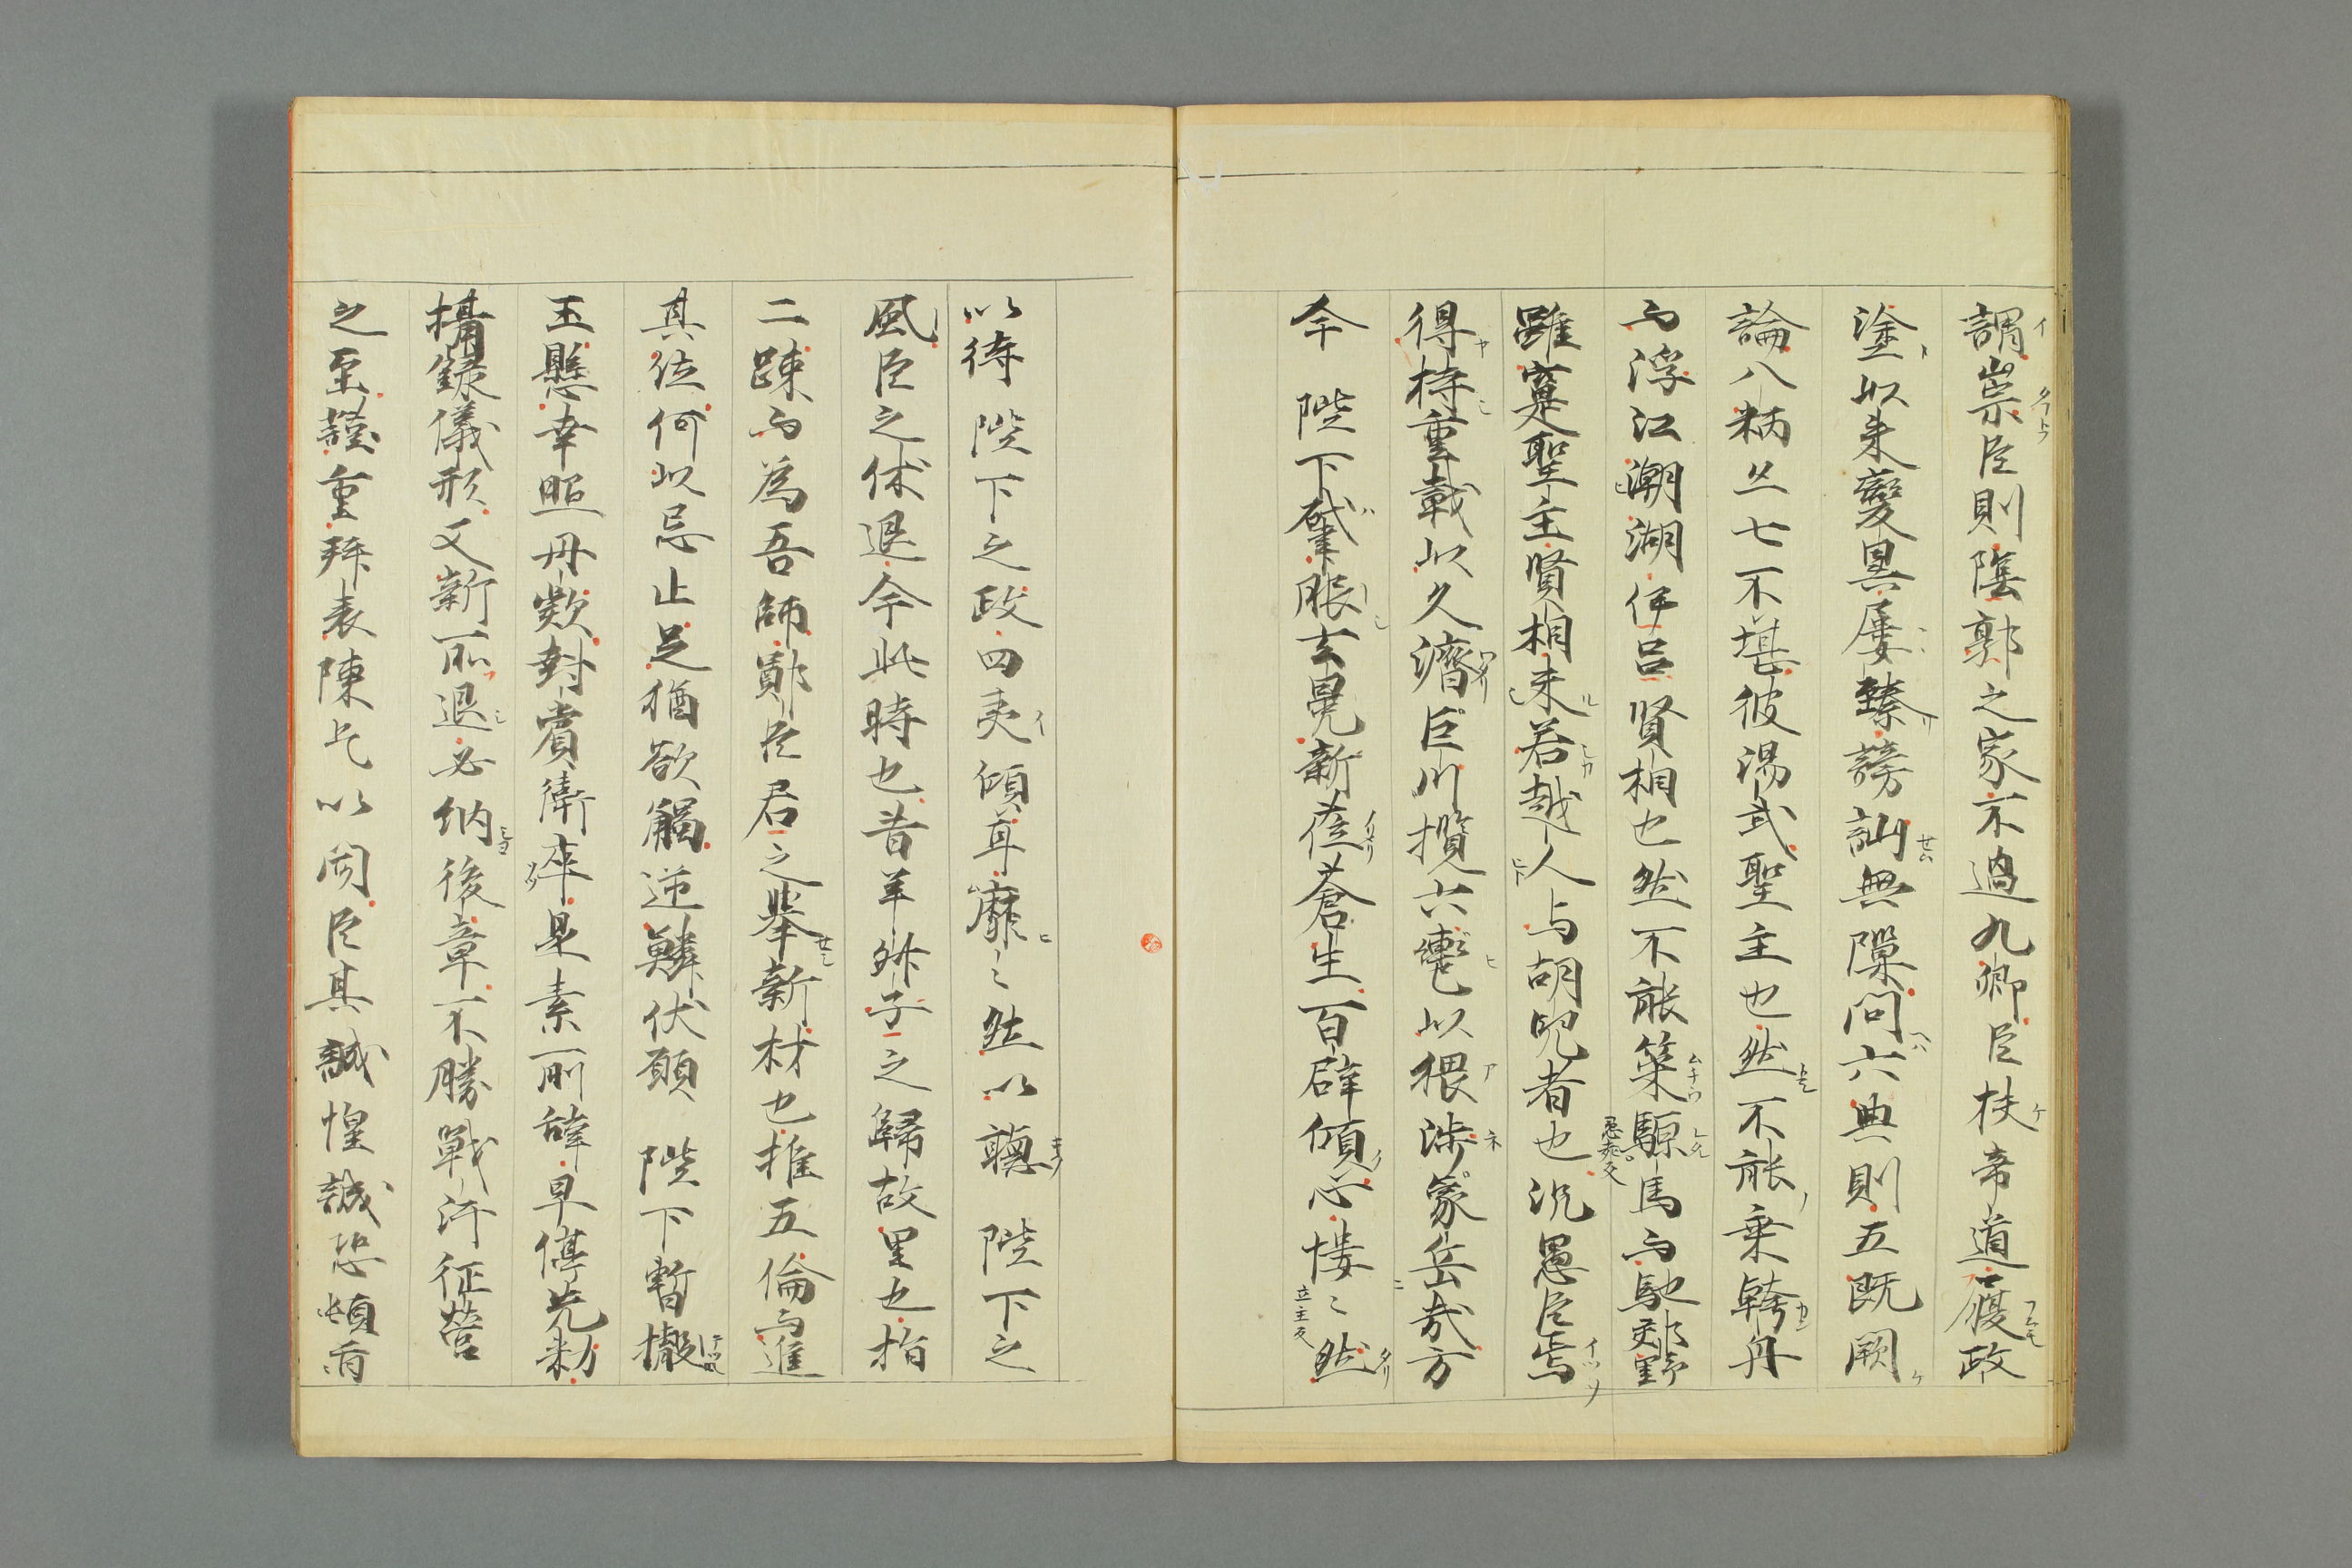 謂崇臣則陰郭之家不過九卿臣扶帝道履政
塗以来變異屢臻謗訕無隟問六典則五既闕
論八柄亦七不堪彼湯武聖主也然不能乗軨舟
而浮江潮湖伊呂賢相也然不能策騵馬而馳郊野
雖寔聖主賢相未若越人与胡児者也況愚臣焉
得持重載以久濟巨川攬六轡以猥渉家岳哉方
今 陛下肇服玄冕新莅蒼生百辟傾心悽〻然
以待 陛下之政四夷傾耳靡〻然以聴 陛下之
風臣之休退今此時也昔羊舛子之歸故里也指
二踈而為吾師鄭良君之舉新材也推五倫而進
其位何以忌止足猶欲觸逆鱗伏願 陛下暫撤
玉懸幸照丹欵封賞衛率是素所辞早停先勅
搆録儀形又新所退必納後章不勝戰汗征營
之至謹重拜表陳乞以聞臣其誠惶誠恐頓首